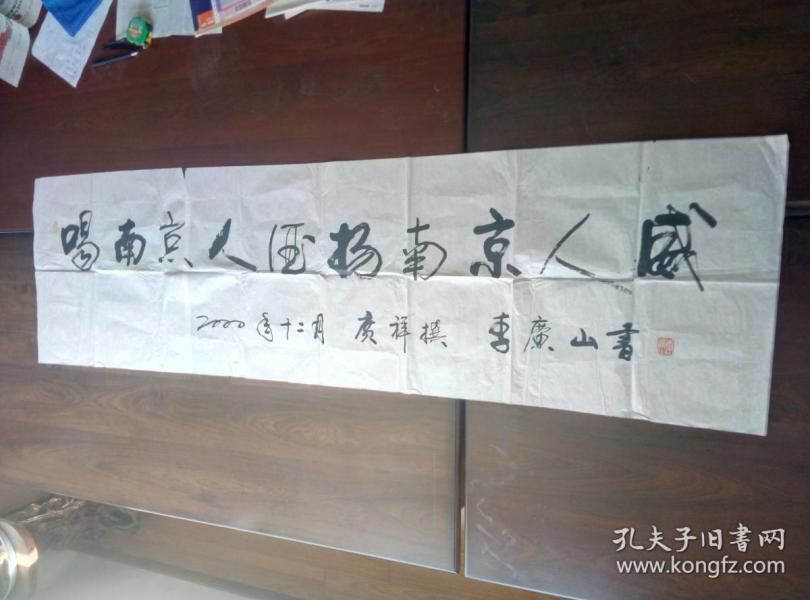 喝南京人酒扬南京人威
2000年十二月 广祥撰 李廣山書
孔夫子旧書网
www.kongfz.com